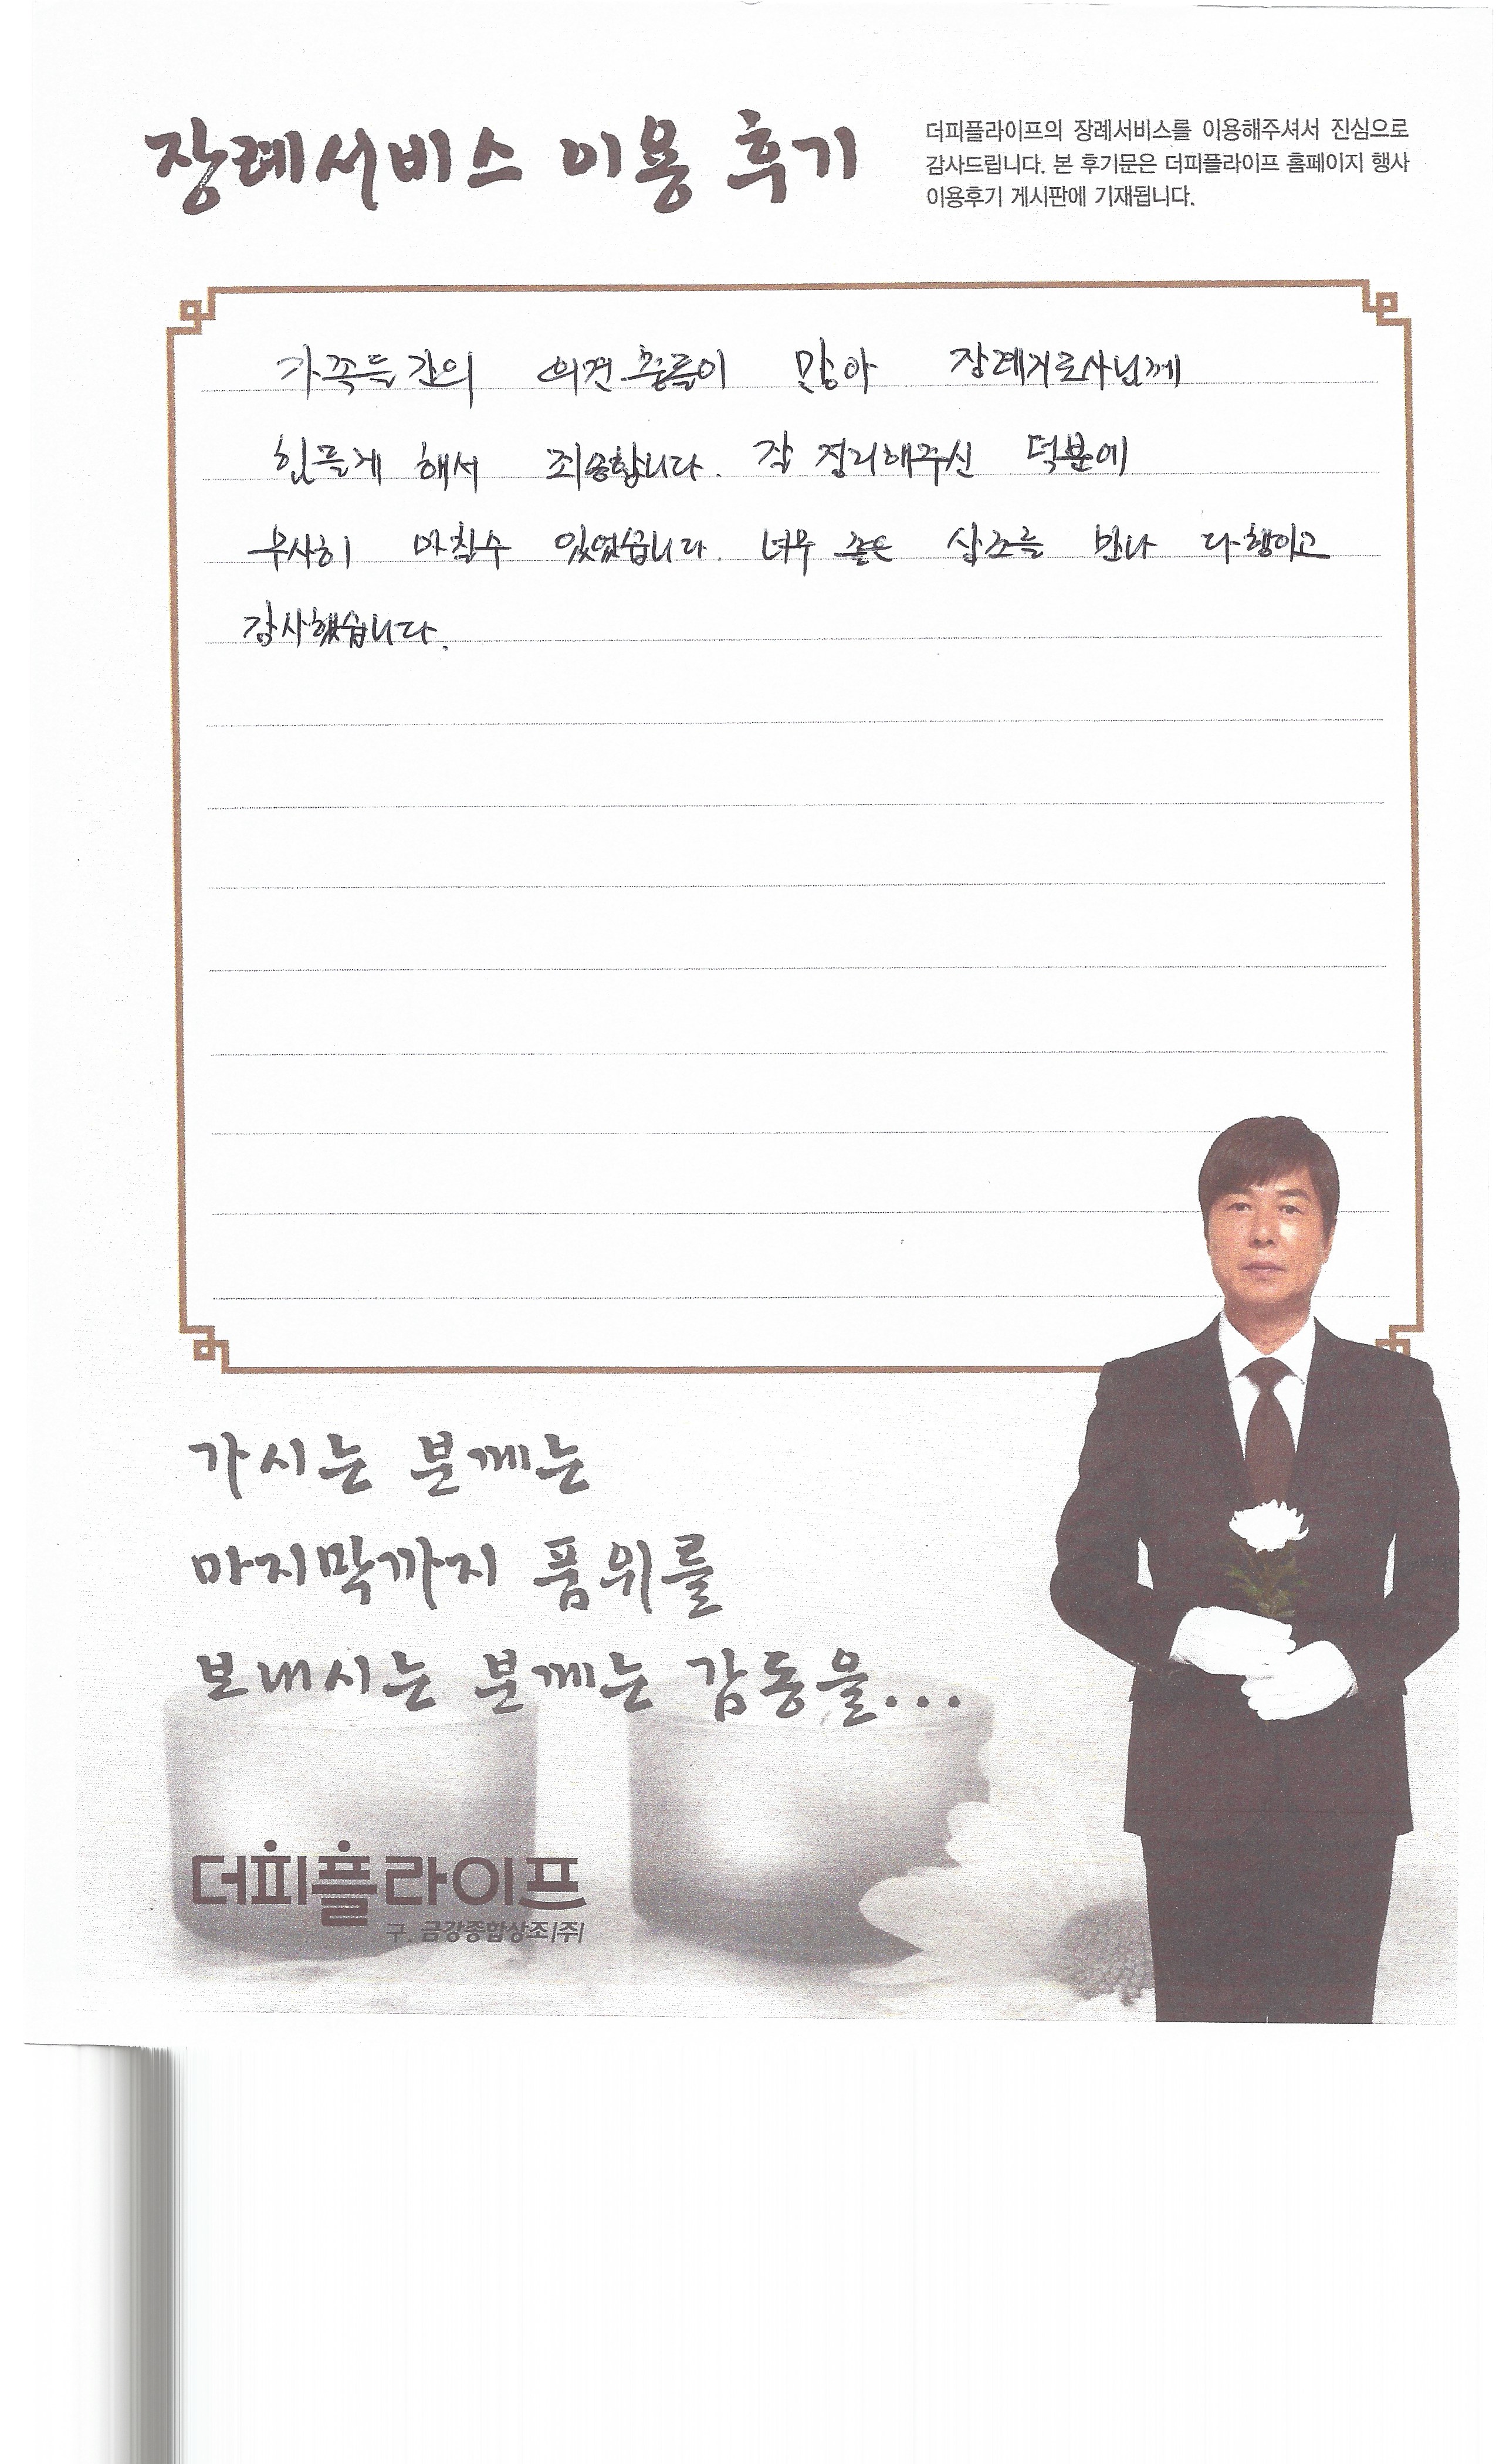 장례서비스 이용 후기
더피플라이프의 장례서비스를 이용해주셔서 진심으로
감사드립니다. 본 후기문은 더피플라이프 홈페이지 행사
이용후기 게시판에 기재됩니다.
가족들 간의 의견 충돌이 많아 장례지도사님께
힘들게 해서 죄송합니다. 잘 정리해주신 덕분에
무사히 마칠수 있었습니다. 너무 좋은 상조를 만나 다행이고
감사했습니다.
가시는 분께는
마지막까지 품위를
보내시는 분께는 감동을...
더피플라이프
구. 금강종합상조(주)